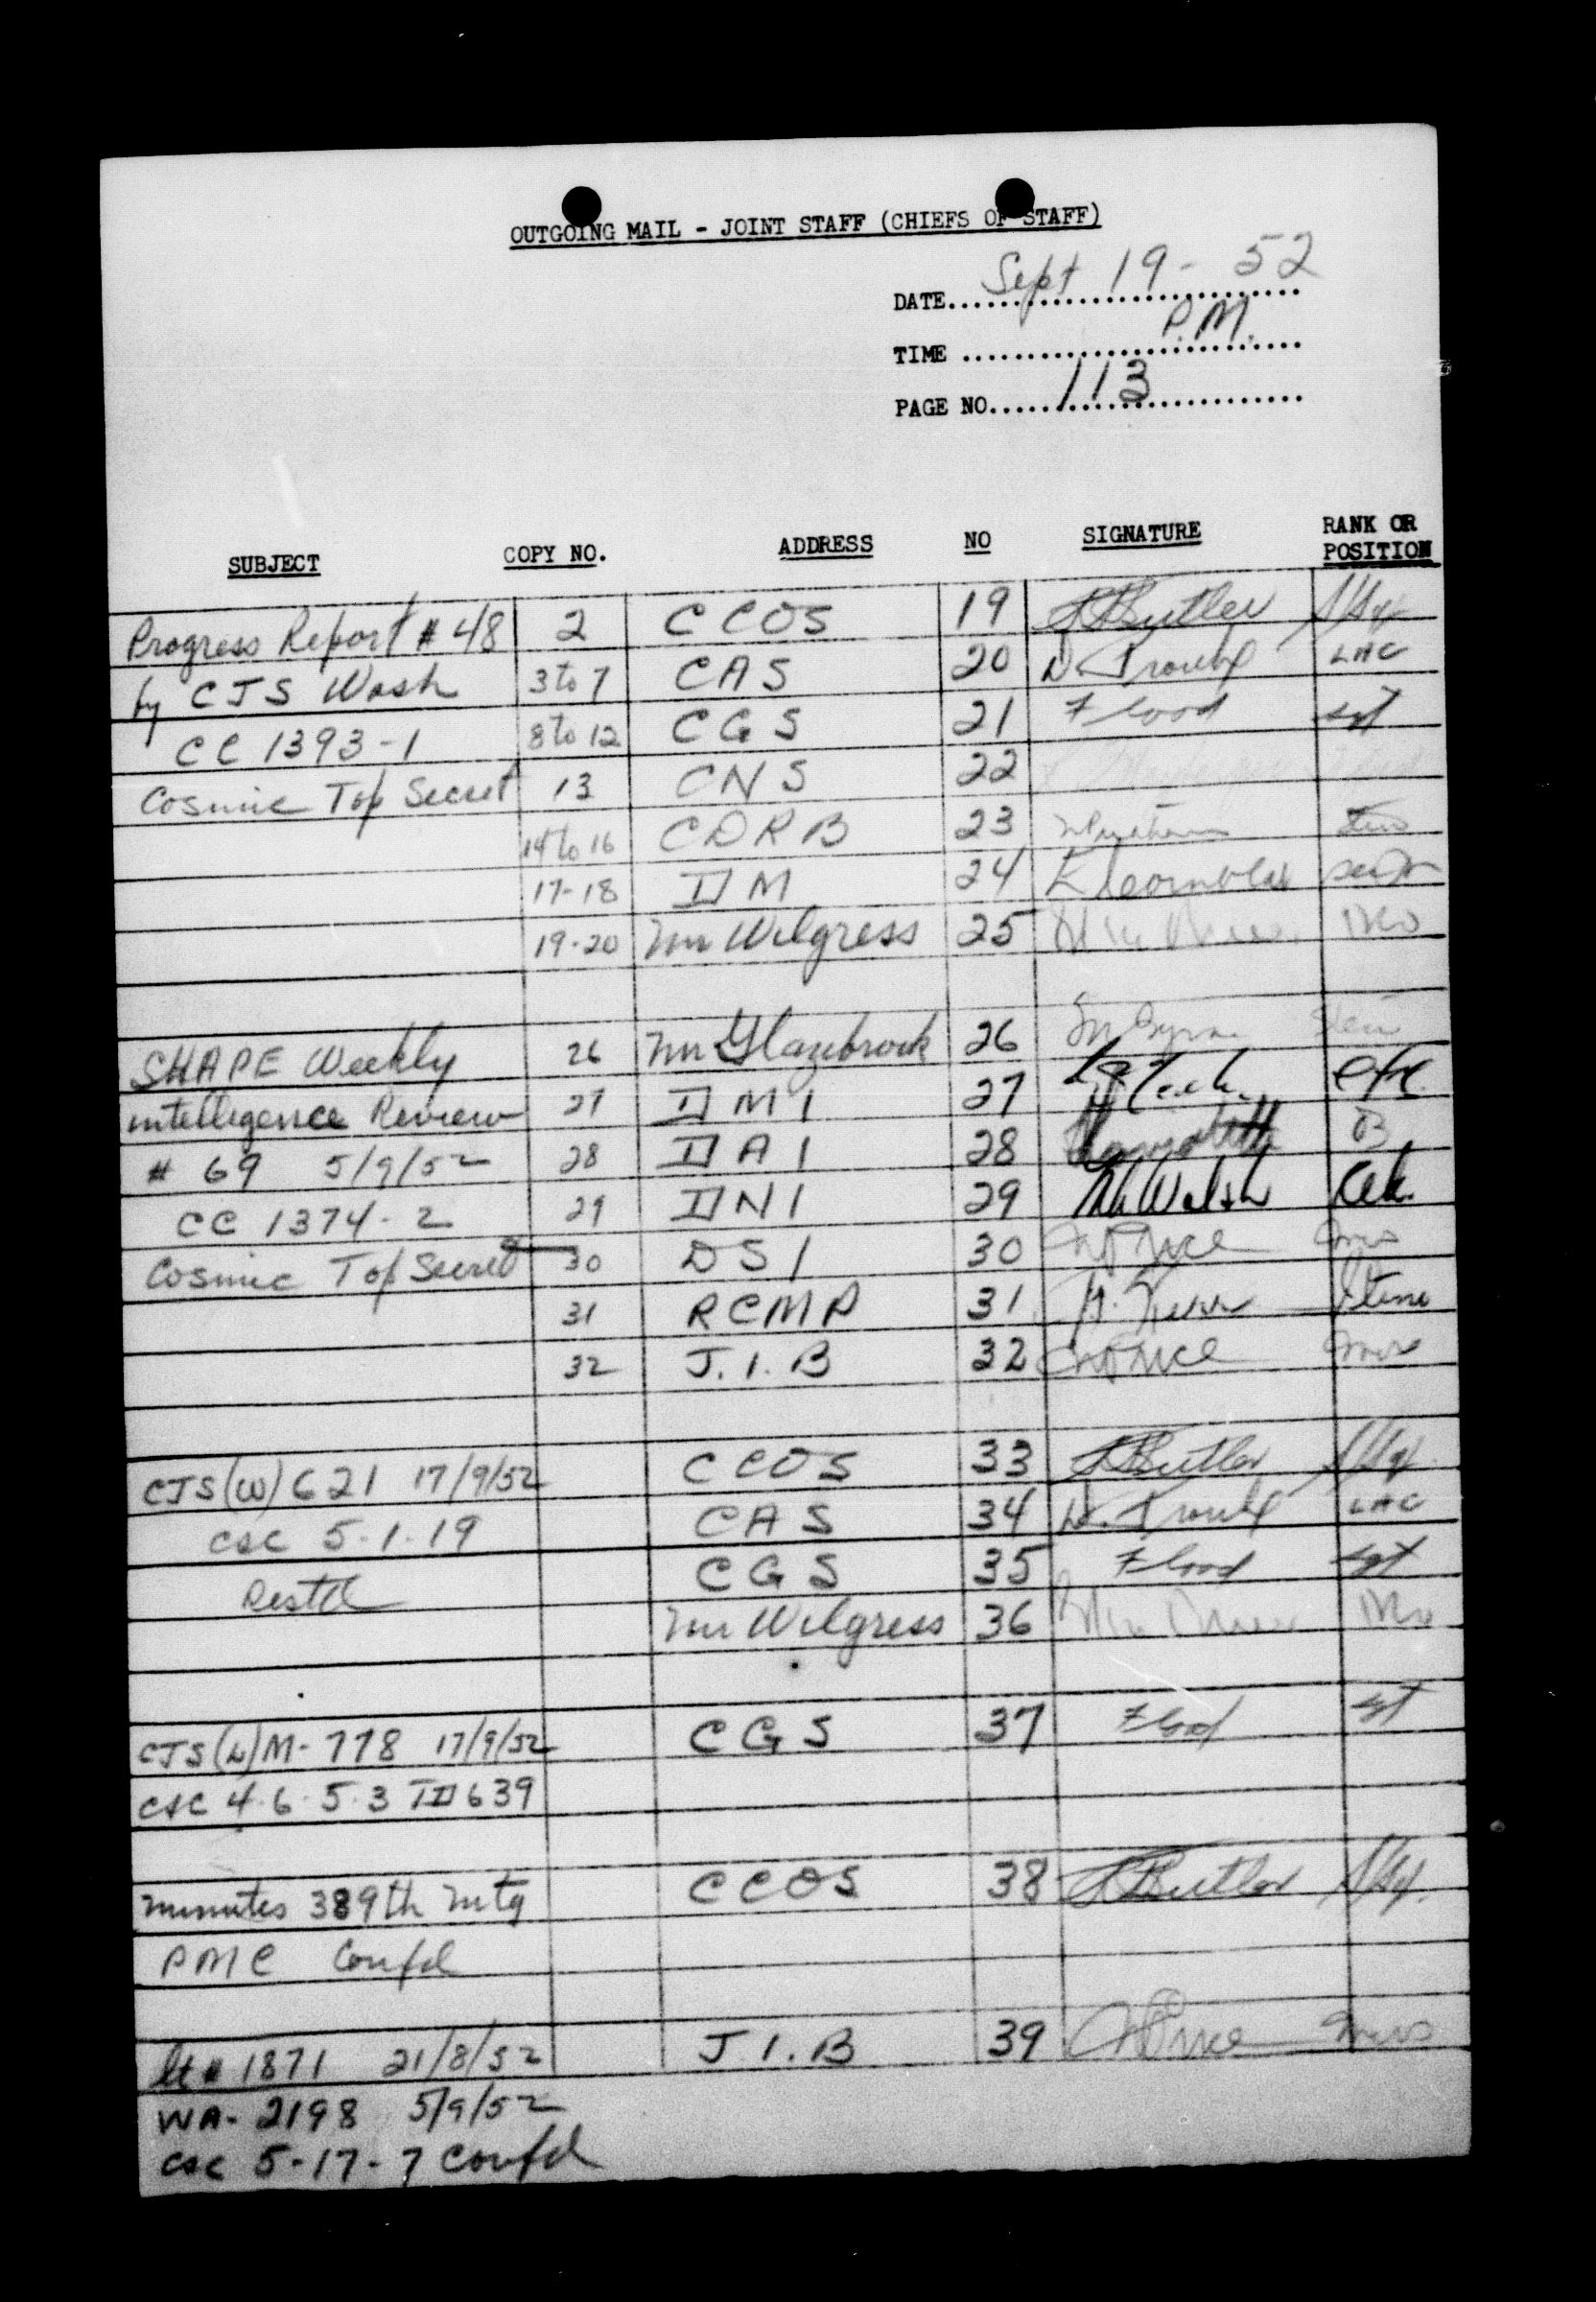 OUTGOING MAIL - JOINT STAFF (CHIEFS OF STAFF)
DATE Sept 19 - 52
TIME P.M.
PAGE NO. 113
SUBJECT COPY NO. ADDRESS NO SIGNATURE RANK OR POSITION
Progress Report # 48 2 CCOS 19 Butler
by CJS Wash 3 to 7 CAS 20 LAC
CC 1393-1 8 to 12 CGS 21 Flood Sgt
Cosmic Top Secret 13 CNS 22
14 to 16 CDRB 23
17-18 DM 24
19-20 Mr Wilgress 25
SHAPE Weekly 26 Mr Glazebrook 26
intelligence Review 27 DMI 27
# 69 5/9/52 28 DAI 28
CC 1374-2 29 DNI 29 Walsh
Cosmic Top Secret 30 DSI 30 Price
31 RCMP 31 Steno
32 J.I.B 32 Price
CJS(W) 621 17/9/52 CCOS 33 Butler
CSC 5.1.19 CAS 34 LAC
Restd CGS 35 Flood Sgt
Mr Wilgress 36
CJS(L)M-778 17/9/52 CGS 37 Flood Sgt
CSC 4.6.5.3 TD 639
Minutes 389th mtg CCOS 38 Butler
PMC Confd
lt # 1871 21/8/52 J.I.B 39 Price
WA-2198 5/9/52
CSC 5-17-7 Confd